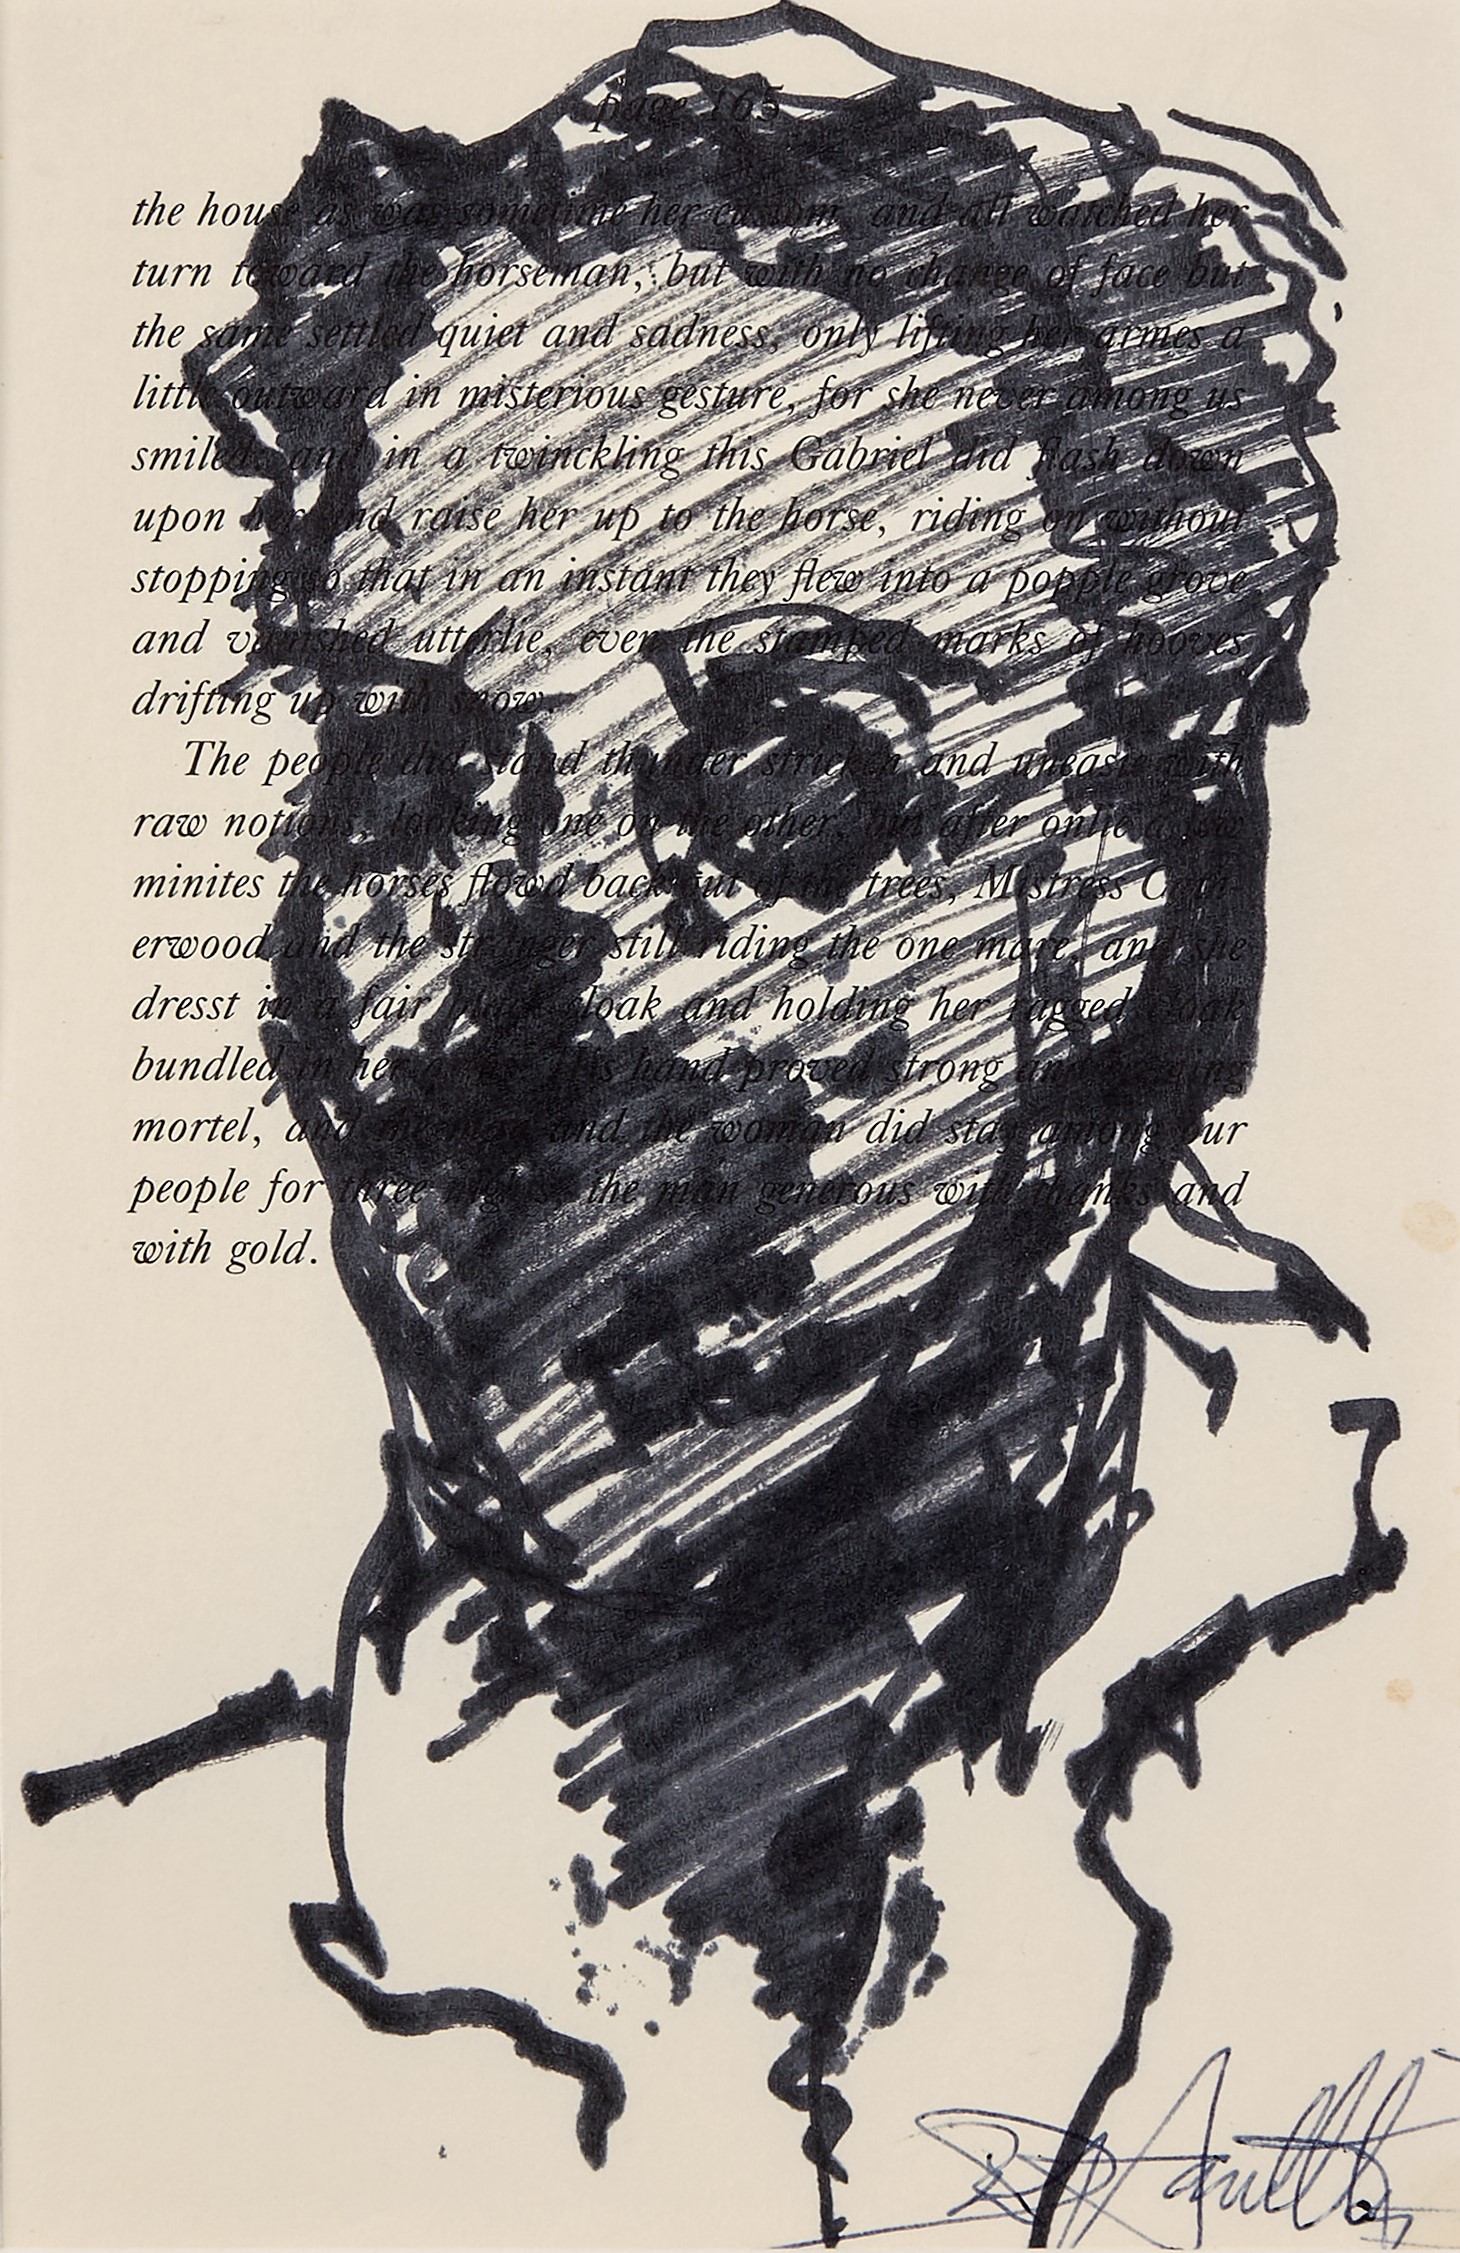 page 165
the house as was sometime her custom, and all watched her
turn toward the horseman, but with no change of face but
the same settled quiet and sadness, only lifting her armes a
little outward in misterious gesture, for she never among us
smiled, and in a twinckling this Gabriel did flash down
upon her and raise her up to the horse, riding on without
stopping so that in an instant they flew into a popple grove
and vanished utterlie, even the stamped marks of hooves
drifting up with snow.
The people did stand thunder stricken and uneasie with
raw notions, looking one on the other, but after onlie a few
minites the horses flowd back out of the trees, Mistress Cath-
erwood and the stranger still riding the one mare, and she
dresst in a fair black cloak and holding her ragged cloak
bundled in her armes. His hand proved strong and
mortel, and the man and the woman did stay among our
people for three nights, the man generous with thanks and
with gold.